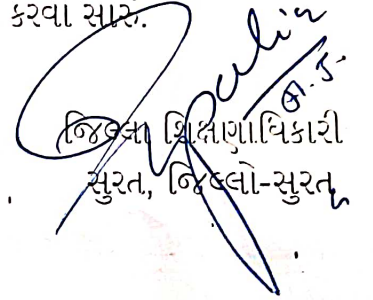 કરવા સારું.
જિલ્લા શિક્ષણાધિકારી
સુરત, જિલ્લો-સુરત